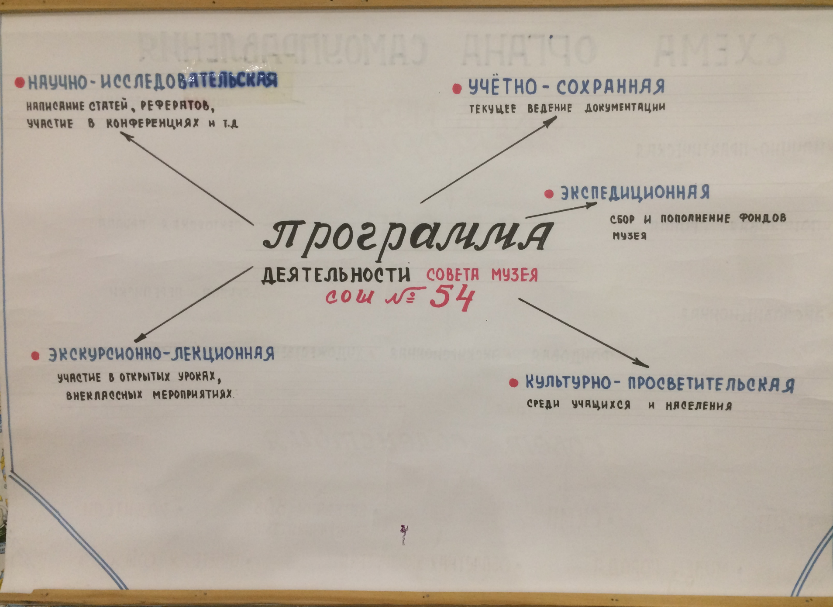 СХЕМА ОРГАНА САМОУПРАВЛЕНИЯ
НАУЧНО-ИССЛЕДОВАТЕЛЬСКАЯ
НАПИСАНИЕ СТАТЕЙ, РЕФЕРАТОВ,
УЧАСТИЕ В КОНФЕРЕНЦИЯХ И Т.Д
УЧЁТНО-СОХРАННАЯ
ТЕКУЩЕЕ ВЕДЕНИЕ ДОКУМЕНТАЦИИ
ЭКСПЕДИЦИОННАЯ
СБОР И ПОПОЛНЕНИЕ ФОНДОВ
МУЗЕЯ
ПРОГРАММА
ДЕЯТЕЛЬНОСТИ СОВЕТА МУЗЕЯ
СОШ № 54
ЭКСКУРСИОННО-ЛЕКЦИОННАЯ
УЧАСТИЕ В ОТКРЫТЫХ УРОКАХ,
ВНЕКЛАССНЫХ МЕРОПРИЯТИЯХ.
КУЛЬТУРНО-ПРОСВЕТИТЕЛЬСКАЯ
СРЕДИ УЧАЩИХСЯ И НАСЕЛЕНИЯ